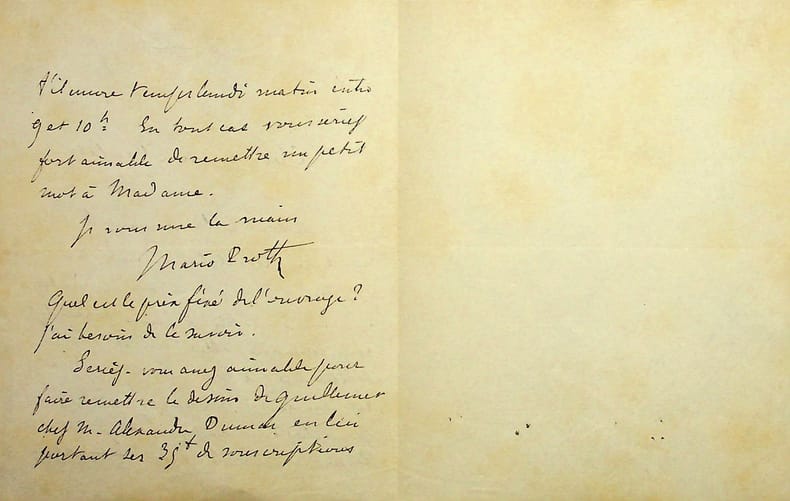 matin entre
9 et 10h. En tout cas vous seriez
fort aimable de remettre un petit
mot à Madame.
Je vous serre la main
Mario Proth
Quel est le prix fixé de l'ouvrage?
j'ai besoin de le savoir.
Seriez-vous assez aimable pour
faire remettre le dessin de Guillemet
chez M. Alexandre Dumas en lui
portant ses 35 f de souscriptions